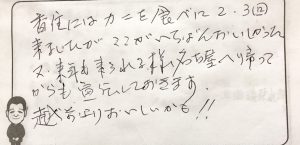 香住にはカニを食べに2.3回
来ましたがここがいちばんおいしかった
又来年も来られる様、名古屋へ帰って
からも宣伝しておきます。
越前よりおいしいかも!!